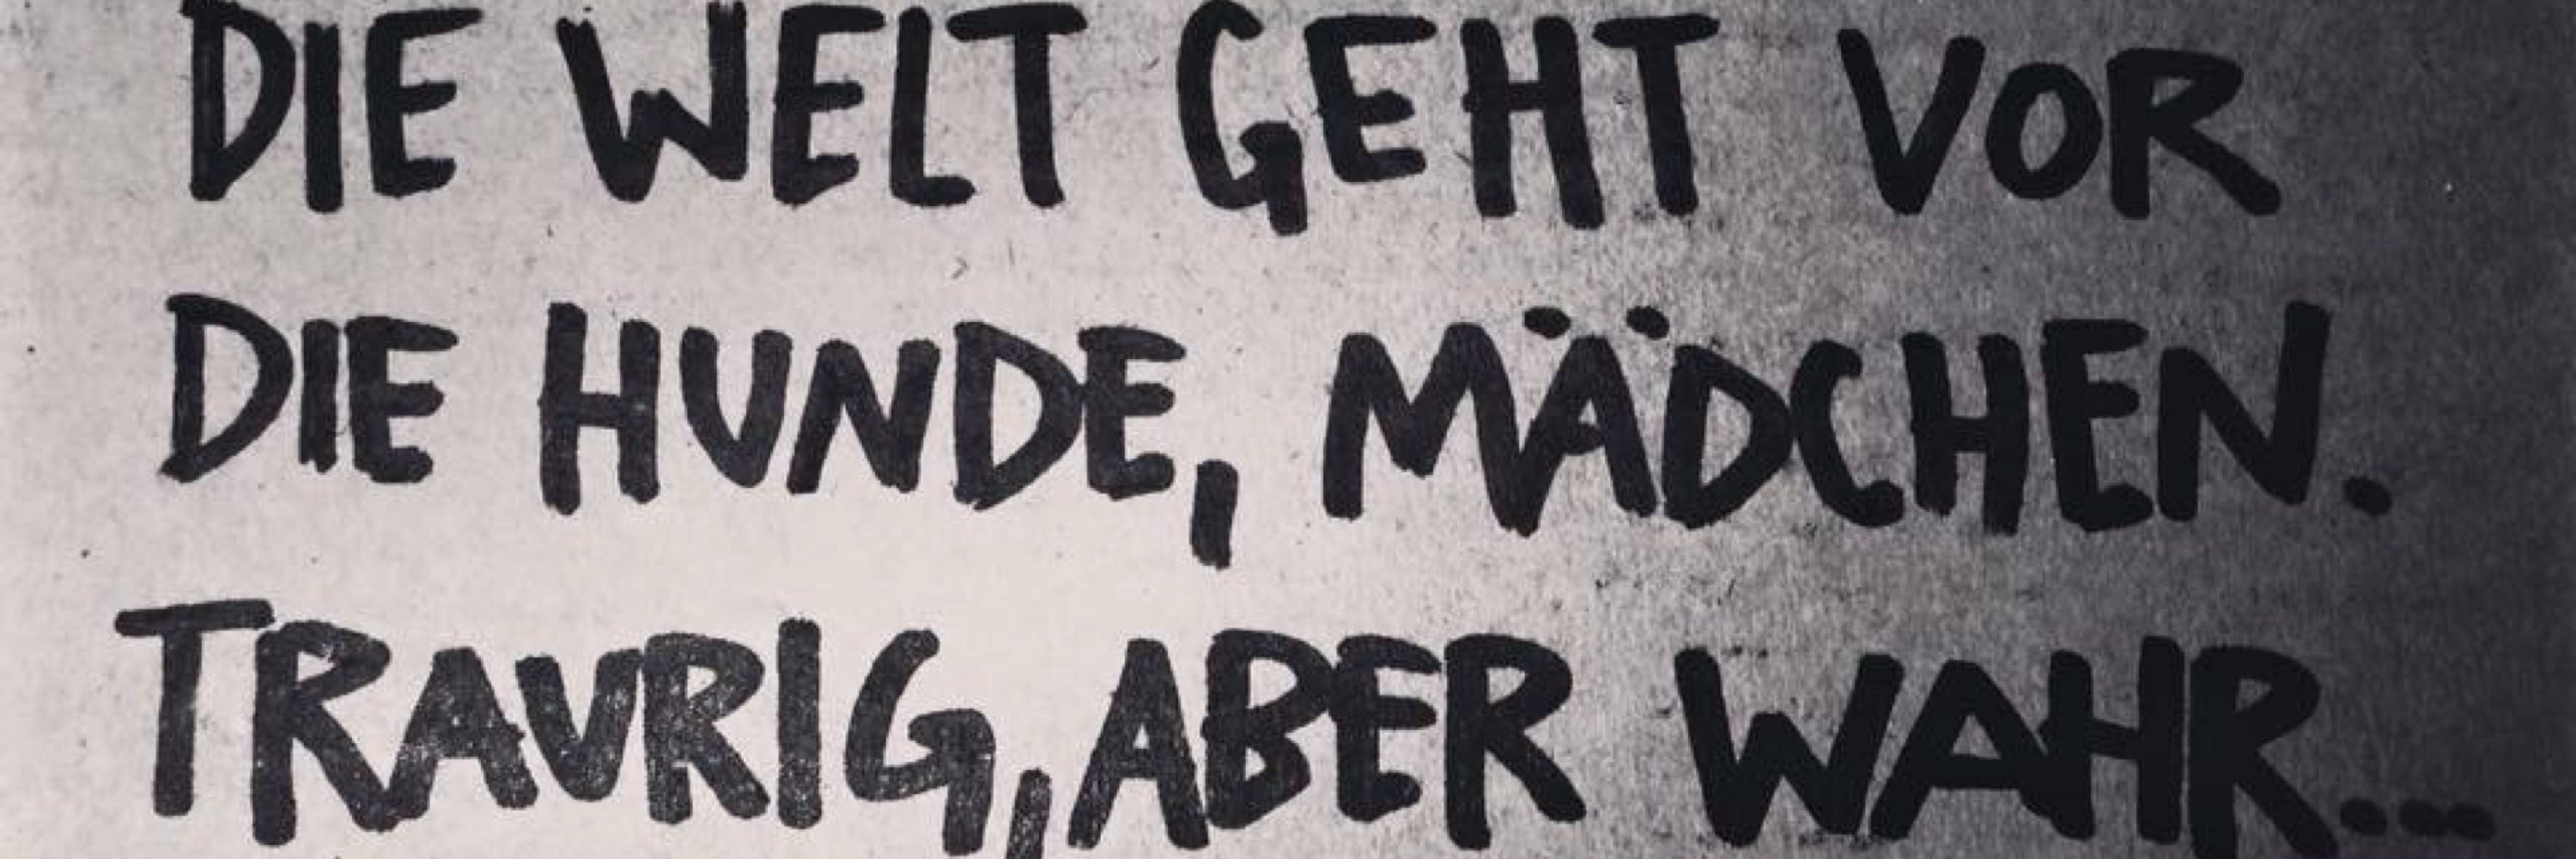 DIE WELT GEHT VOR
DIE HUNDE, MÄDCHEN.
TRAURIG, ABER WAHR...